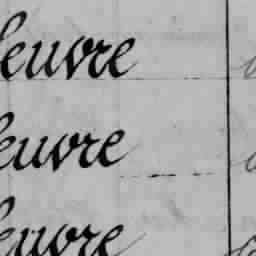 feuvre
feuvre
feuvre